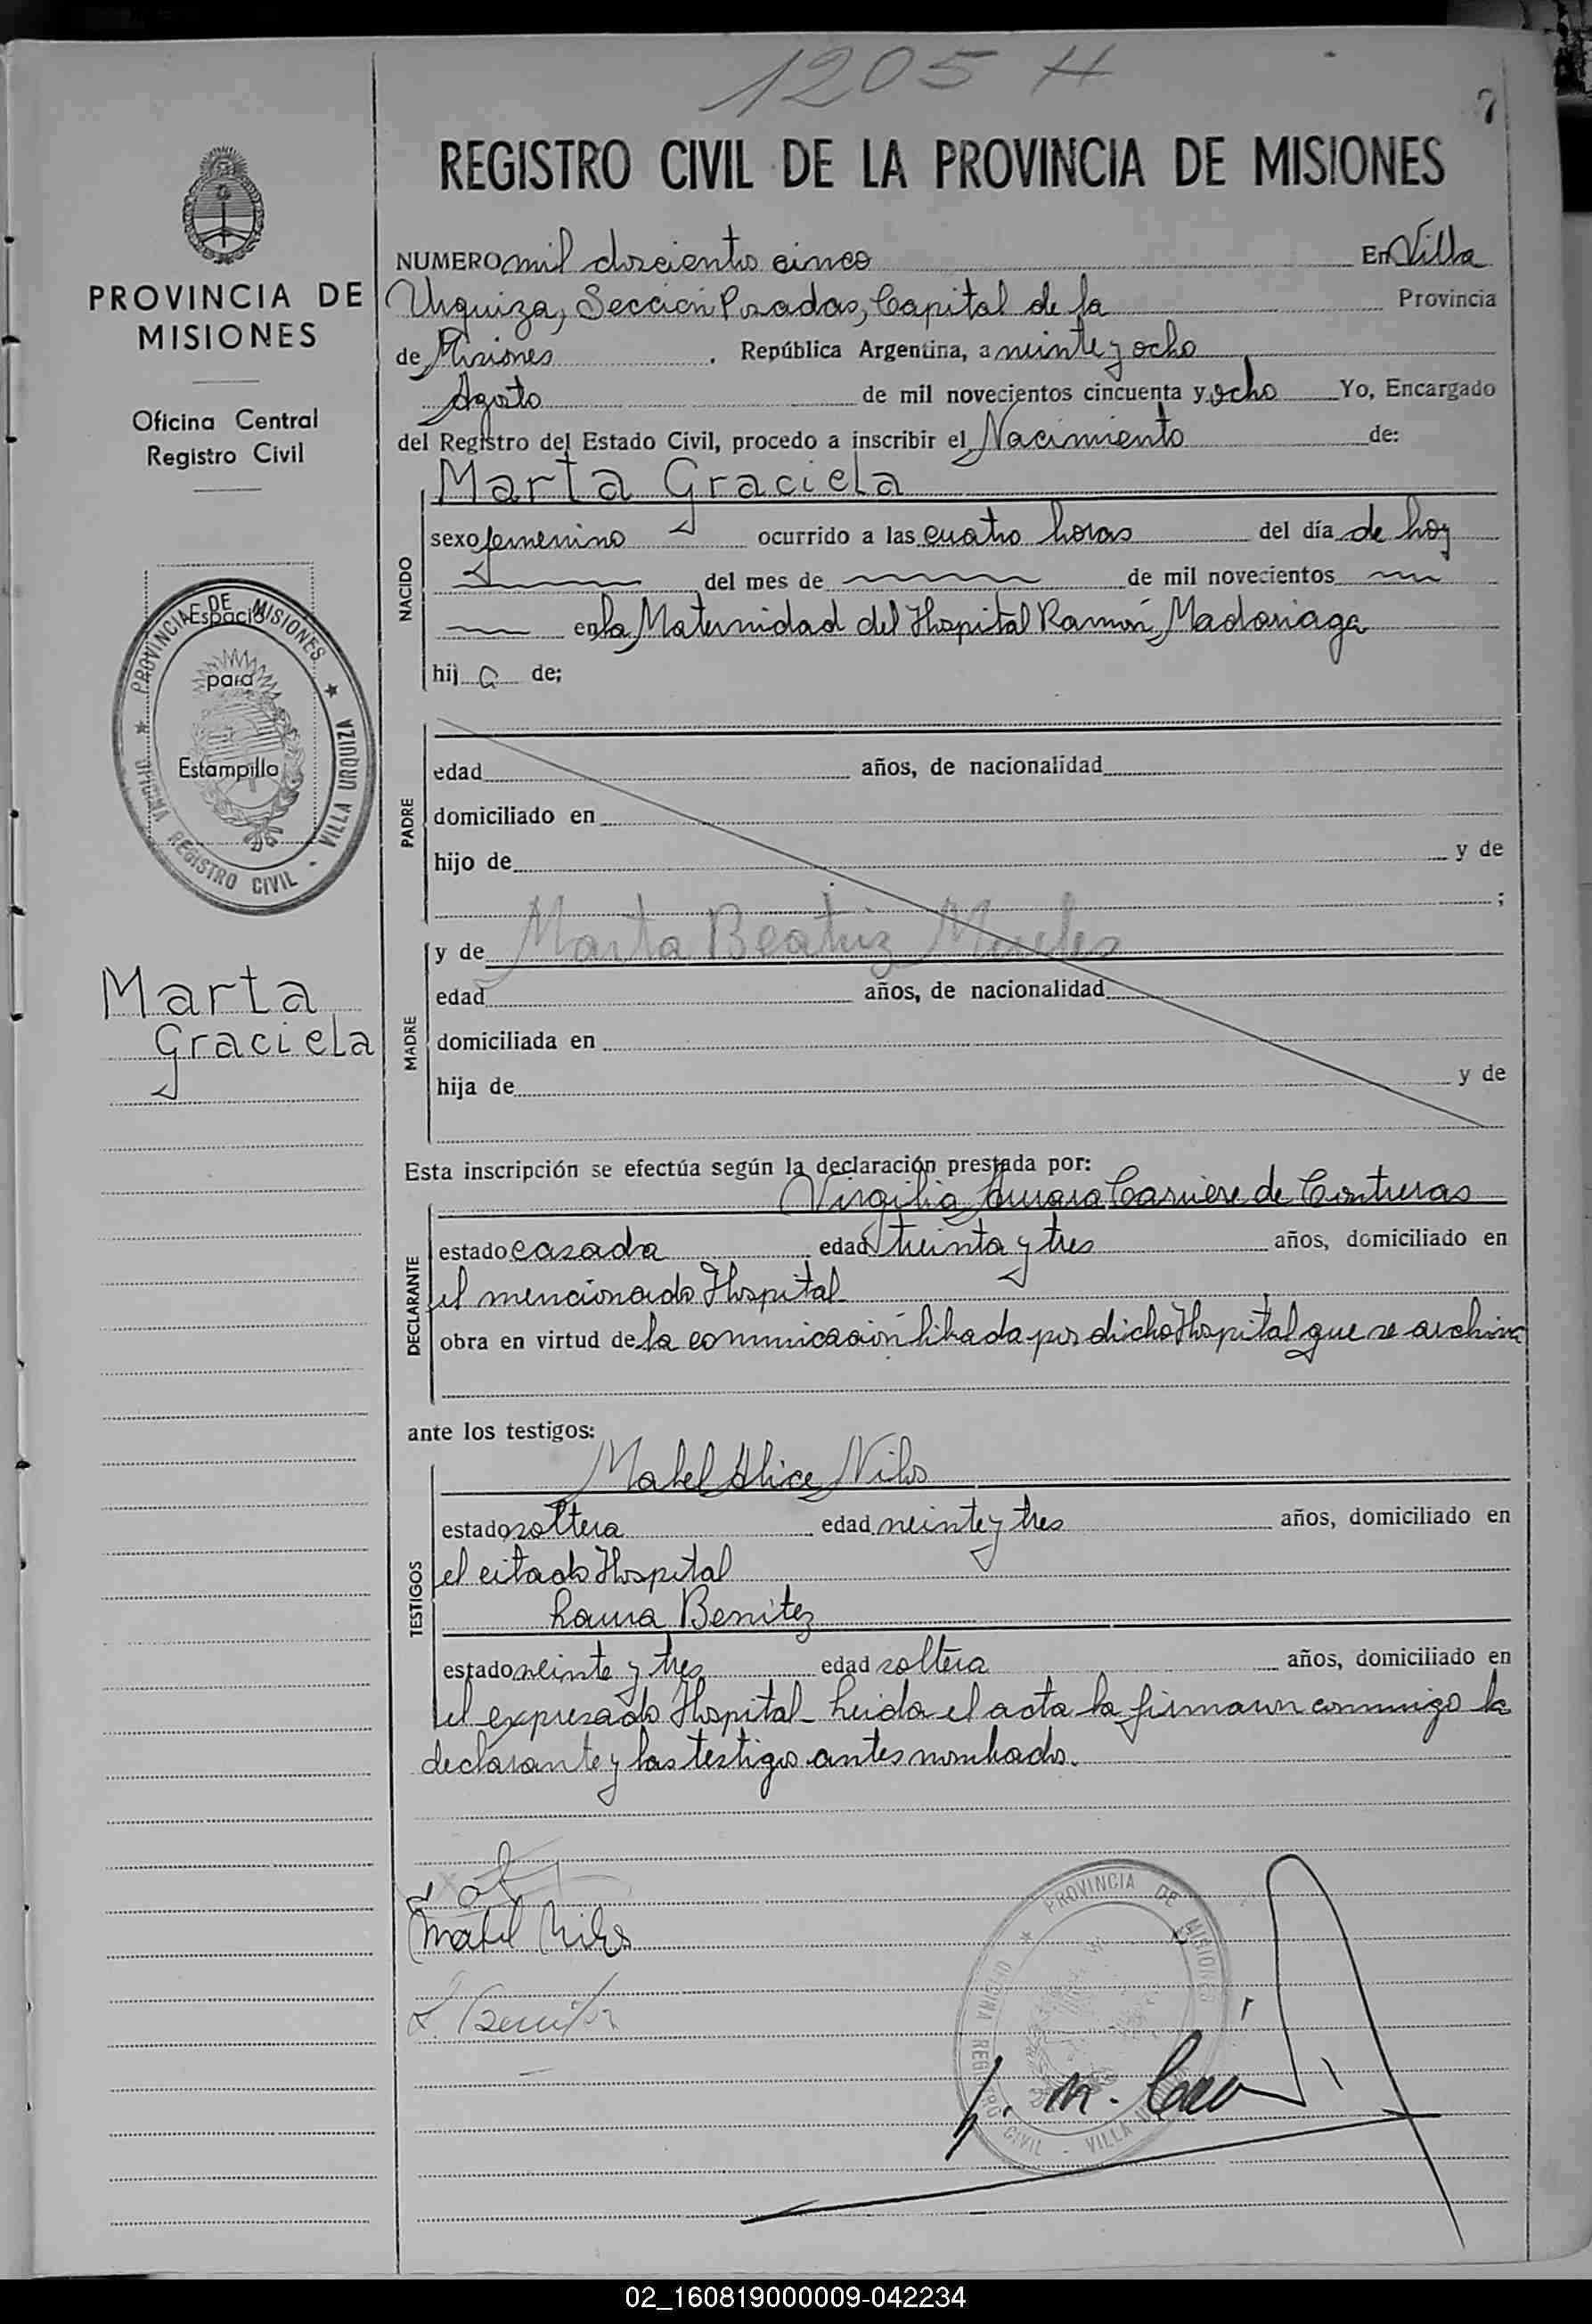 1205 H
7
REGISTRO CIVIL DE LA PROVINCIA DE MISIONES
PROVINCIA DE
MISIONES
Oficina Central
Registro Civil
Espacio
para
Estampillo
PROVINCIA DE MISIONES
OFICINA REGISTRO CIVIL - VILLA URQUIZA
Marta
Graciela
NUMERO mil doscientos cinco En Villa
Urquiza, Sección Posadas, Capital de la Provincia
de Misiones. República Argentina, a veinte y ocho
Agosto de mil novecientos cincuenta y ocho Yo, Encargado
del Registro del Estado Civil, procedo a inscribir el Nacimiento de:
Marta Graciela
NACIDO
sexo femenino ocurrido a las cuatro horas del día de hoy
del mes de de mil novecientos
en la Maternidad del Hospital Ramón Madariaga
hij a de;
PADRE
edad años, de nacionalidad
domiciliado en
hijo de y de
;
MADRE
y de Marta Beatriz
edad años, de nacionalidad
domiciliada en
hija de y de
Esta inscripción se efectúa según la declaración prestada por:
Virgilia Aurora Carriere de Contreras
DECLARANTE
estado casada edad treinta y tres años, domiciliado en
el mencionado Hospital
obra en virtud de la comunicación librada por dicho Hospital que se archiva
ante los testigos:
Mabel Alice Nilos
TESTIGOS
estado soltera edad veinte y tres años, domiciliado en
el citado Hospital
Laura Benitez
estado veinte y tres edad soltera años, domiciliado en
el expresado Hospital- Leida el acta la firmaron conmigo la
declarante y las testigos antes nombrados.
Mabel Nilos
L. Benitez
PROVINCIA DE MISIONES
OFICINA REGISTRO CIVIL - VILLA URQUIZA
02_160819000009-042234